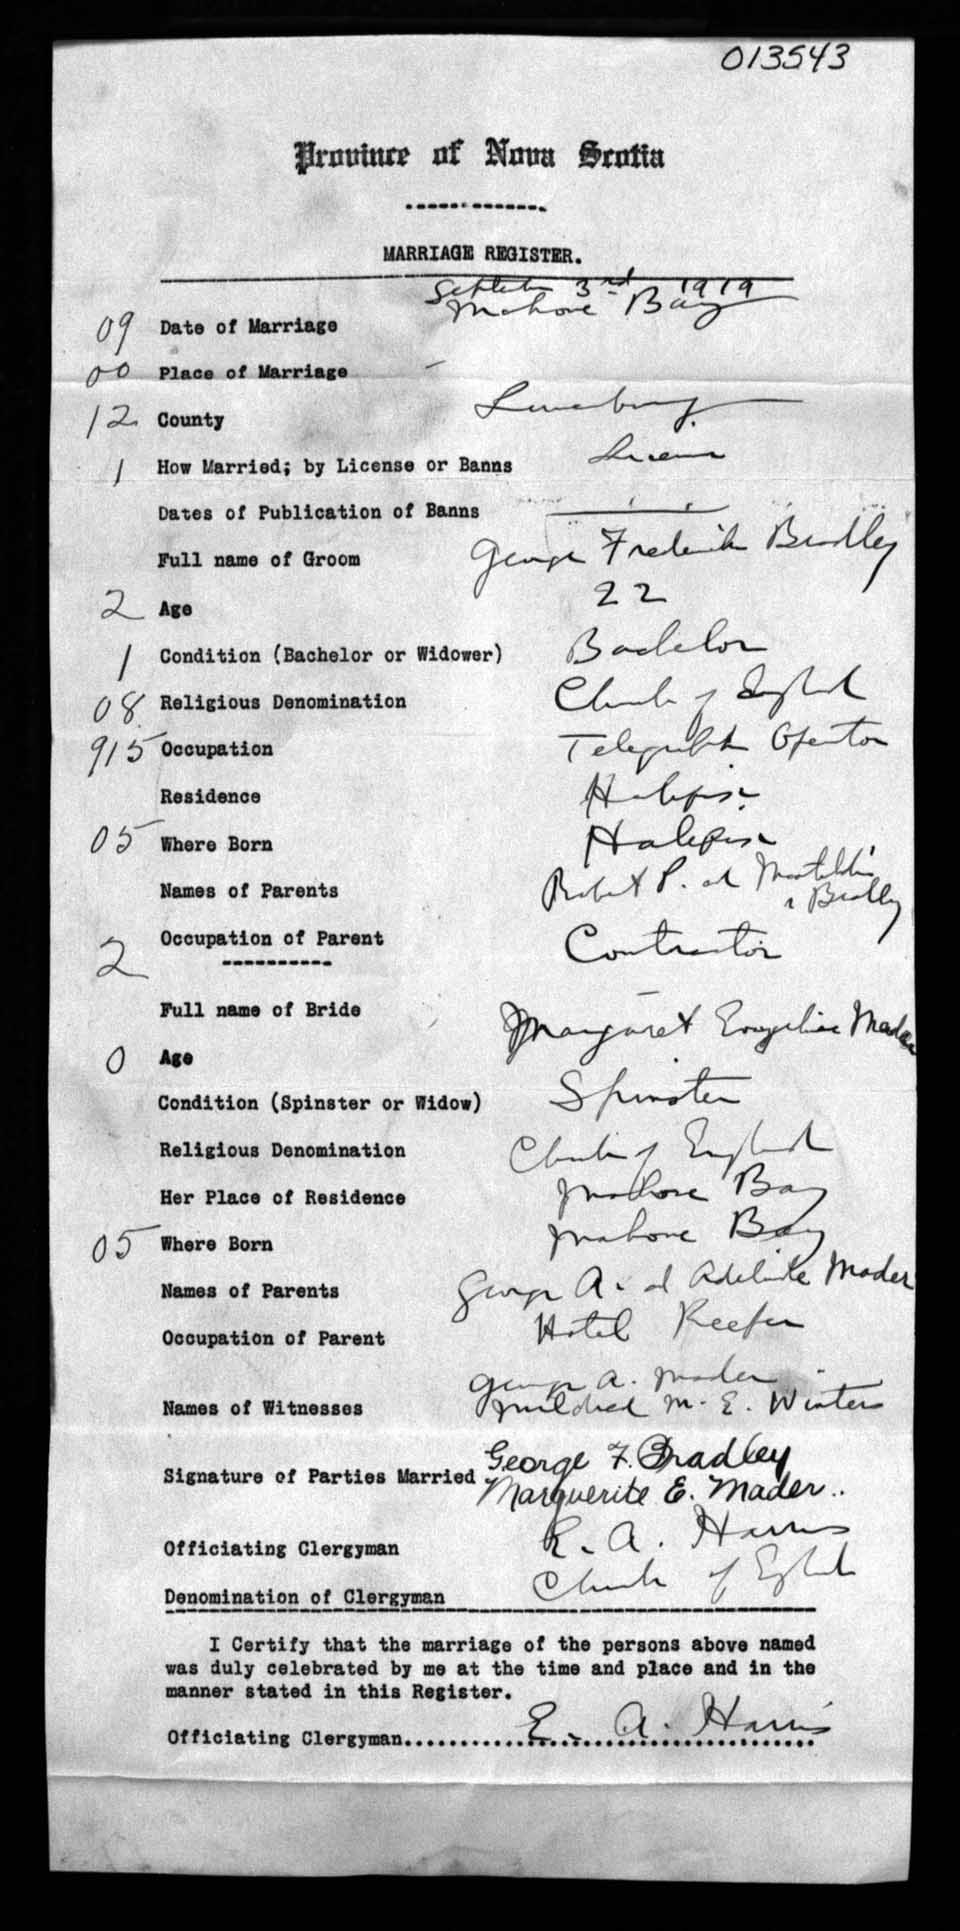 013543
Province of Nova Scotia
MARRIAGE REGISTER.
September 3rd 1919
09 Date of Marriage Mahone Bay
00 Place of Marriage
12 County Lunenburg
1 How Married; by License or Banns License
Dates of Publication of Banns
Full name of Groom George Frederick Bradley
2 Age 22
1 Condition (Bachelor or Widower) Bachelor
08 Religious Denomination Church of England
915 Occupation Telegraph Operator
Residence Halifax
05 Where Born Halifax
Names of Parents Robert P. and Matilda
Bradley
2 Occupation of Parent Contractor
Full name of Bride Margaret Evangeline Mader
0 Age
Condition (Spinster or Widow) Spinster
Religious Denomination Church of England
Her Place of Residence Mahone Bay
05 Where Born Mahone Bay
Names of Parents George A. and Adelaide Mader
Occupation of Parent Hotel Keeper
George A. Mader
Names of Witnesses Mildred M. E. Winters
George F. Bradley
Signature of Parties Married Marguerite E. Mader..
Officiating Clergyman E. A. Harris
Denomination of Clergyman Church of England
I Certify that the marriage of the persons above named
was duly celebrated by me at the time and place and in the
manner stated in this Register.
Officiating Clergyman E. A. Harris